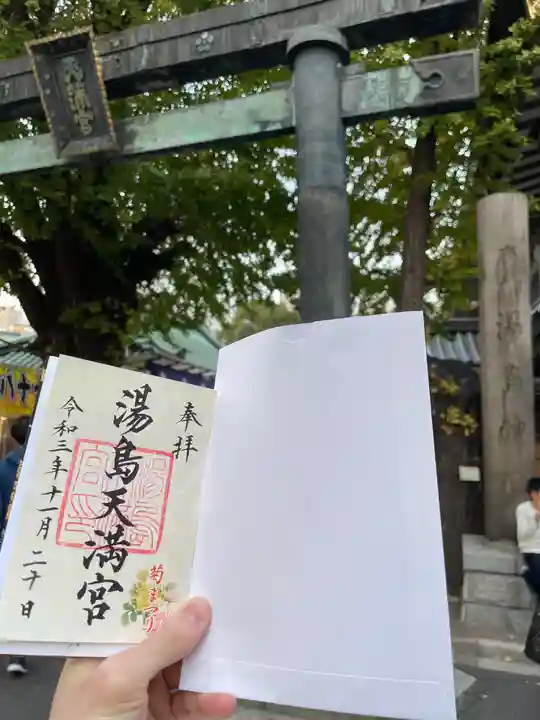 天満宮
奉拝
湯島天満宮
令和三年十一月二十日
菊まつり